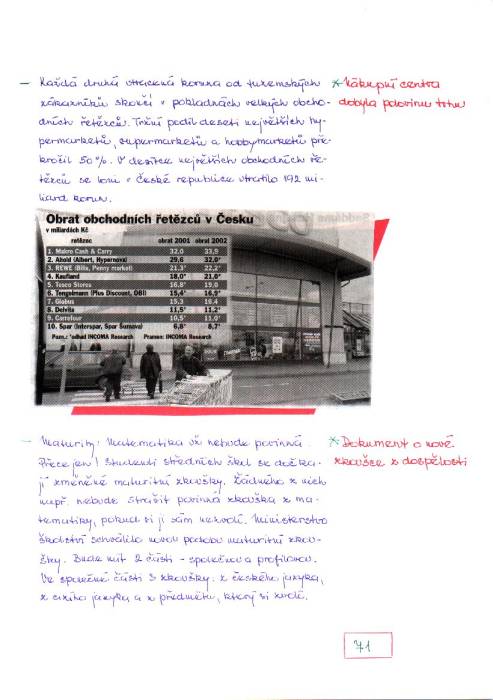 - Každá druhá utracená koruna od tuzemských
zákazníků skončí v pokladnách velkých obcho-
dních řetězců. Tržní podíl deseti největších hy-
permarketů, supermarketů a hobbymarketů pře-
kročil 50 %. V desítce největších obchodních ře-
tězců se loni v České republice utratilo 192 mi-
liard korun.
* Nákupní centra
dobyla polovinu trhu
Obrat obchodních řetězců v Česku
v miliardách Kč
řetězec obrat 2001 obrat 2002
1. Makro Cash & Carry 32,0 33,9
2. Ahold (Albert, Hypernova) 29,6 32,0*
3. REWE (Billa, Penny market) 21,3* 22,2*
4. Kaufland 18,0* 21,0*
5. Tesco Stores 16,8* 19,0
6. Tengelmann (Plus Discount, OBI) 15,4* 16,9*
7. Globus 15,3 16,4
8. Delvita 11,5* 11,2*
9. Carrefour 10,5* 11,0*
10. Spar (Interspar, Spar Šumava) 6,8* 8,7*
Pozn.: *odhad INCOMA Research Pramen: INCOMA Research
- Maturity: Matematika už nebude povinná.
Přece jen! Studenti středních škol se dočka-
jí změněné maturitní zkoušky. Žádného z nich
např. nebude strašit povinná zkouška z ma-
tematiky, pokud si ji sám nezvolí. Ministerstvo
školství schválilo novou podobu maturitní zkou-
šky. Bude mít 2 části - společnou a profilovou.
Ve společné části 3 zkoušky: z českého jazyka,
z cizího jazyka a z předmětu, který si zvolí.
* Dokument o nové
zkoušce z dospělosti
71